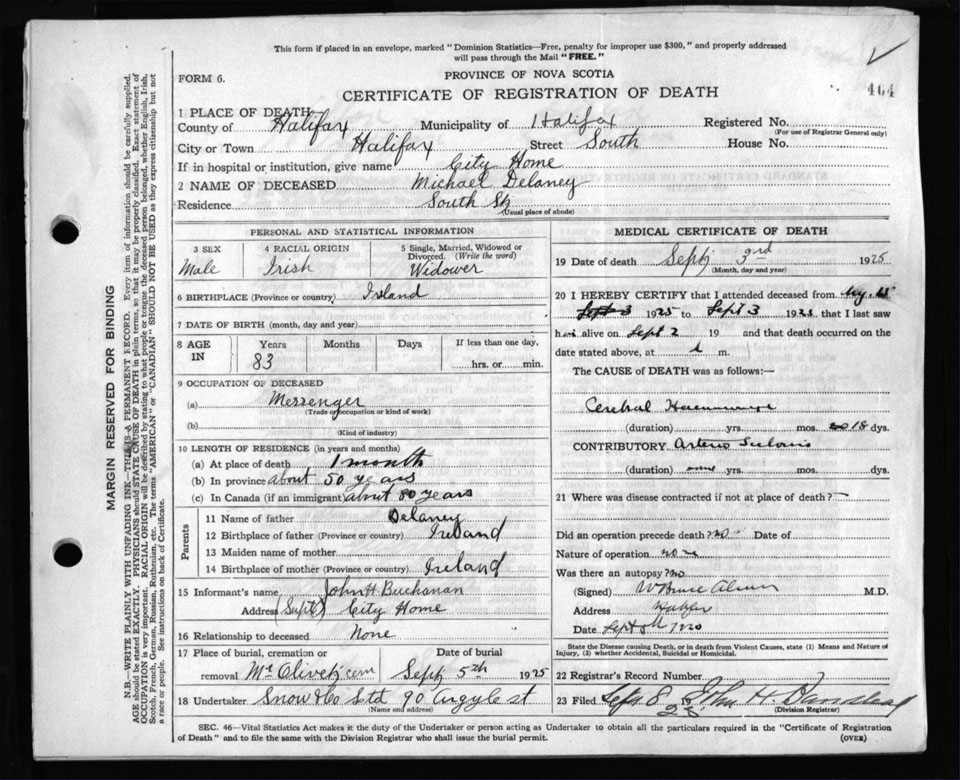 This form if placed in an envelope, marked "Dominion Statistics—Free, penalty for improper use $300," and properly addressed
will pass through the Mail "FREE."
FORM 6.
PROVINCE OF NOVA SCOTIA
464
CERTIFICATE OF REGISTRATION OF DEATH
1 PLACE OF DEATH
County of Halifax Municipality of Halifax Registered No.
(For use of Registrar General only)
City or Town Halifax Street South House No.
If in hospital or institution, give name City Home
2 NAME OF DECEASED Michael Delaney
Residence South St
(Usual place of abode)
MARGIN RESERVED FOR BINDING
N.B.—WRITE PLAINLY WITH UNFADING INK—THIS IS A PERMANENT RECORD. Every item of information should be carefully supplied.
AGE should be stated EXACTLY. PHYSICIANS should STATE CAUSE OF DEATH in plain terms, so that it may be properly classified. Exact statement of
OCCUPATION is very important. RACIAL ORIGIN will be described by stating to what people or tongue the deceased person belonged, whether English, Irish,
Scotch, French, German, Russian, Ruthenian, etc. The terms "AMERICAN" or "CANADIAN" SHOULD NOT BE USED as they express citizenship but not
a race or people. See instructions on back of Certificate.
PERSONAL AND STATISTICAL INFORMATION
3 SEX
Male
4 RACIAL ORIGIN
Irish
5 Single, Married, Widowed or
Divorced. (Write the word)
Widower
6 BIRTHPLACE (Province or country) Ireland
7 DATE OF BIRTH (month, day and year)
8 AGE
IN
Years Months Days If less than one day,
83 hrs. or min.
9 OCCUPATION OF DECEASED
(a) Messenger
(Trade occupation or kind of work)
(b)
(Kind of industry)
10 LENGTH OF RESIDENCE (in years and months)
(a) At place of death 1 month
(b) In province about 50 years
(c) In Canada (if an immigrant) about 80 years
Parents
11 Name of father Delaney
12 Birthplace of father (Province or country) Ireland
13 Maiden name of mother
14 Birthplace of mother (Province or country) Ireland
15 Informant's name John H Buchanan
Address (Supt) City Home
16 Relationship to deceased None
17 Place of burial, cremation or Date of burial
removal Mt Olivet cem Sept 5th 1925
18 Undertaker Snow & Co Ltd 90 Argyle st
(Name and address)
MEDICAL CERTIFICATE OF DEATH
19 Date of death Sept 3rd 1925
(Month, day and year)
20 I HEREBY CERTIFY that I attended deceased from
Sept 3 1925 to Sept 3 1925, that I last saw
him alive on Sept 2 19 and that death occurred on the
date stated above, at m.
The CAUSE of DEATH was as follows:—
Cerebral
(duration) yrs. mos. 18 dys.
CONTRIBUTORY Arterio
(duration) yrs. mos. dys.
21 Where was disease contracted if not at place of death? —
Did an operation precede death? no Date of
Nature of operation none
Was there an autopsy? no
(Signed) W Bruce M.D.
Address Halifax
Date Sept
State the Disease causing Death, or in death from Violent Causes, state (1) Means and Nature of
Injury, (2) whether Accidental, Suicidal or Homicidal.
22 Registrar's Record Number
23 Filed Sept 8 25 John H
(Division Registrar)
SEC. 46—Vital Statistics Act makes it the duty of the Undertaker or person acting as Undertaker to obtain all the particulars required in the "Certificate of Registration
of Death" and to file the same with the Division Registrar who shall issue the burial permit.
(OVER)